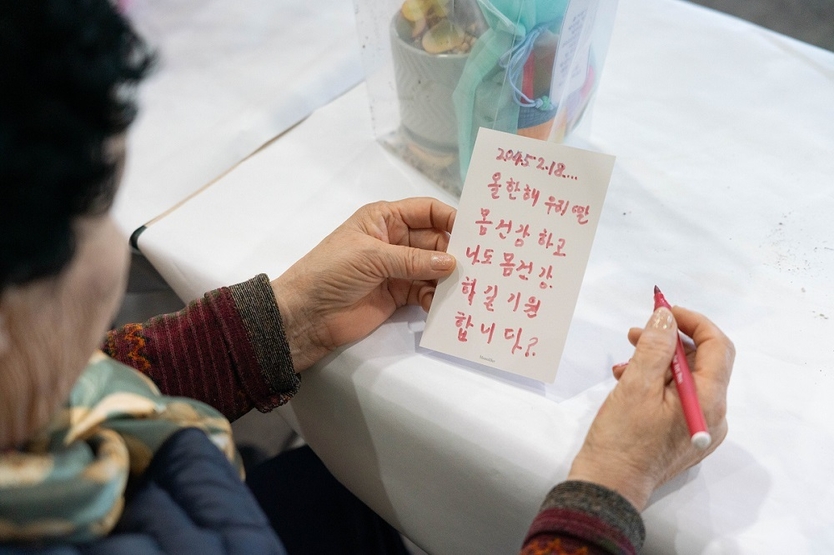 2045 2.18....
올한해 우리 딸
몸 건강 하고
나도 몸건강.
할 길 기원
합 니 다?